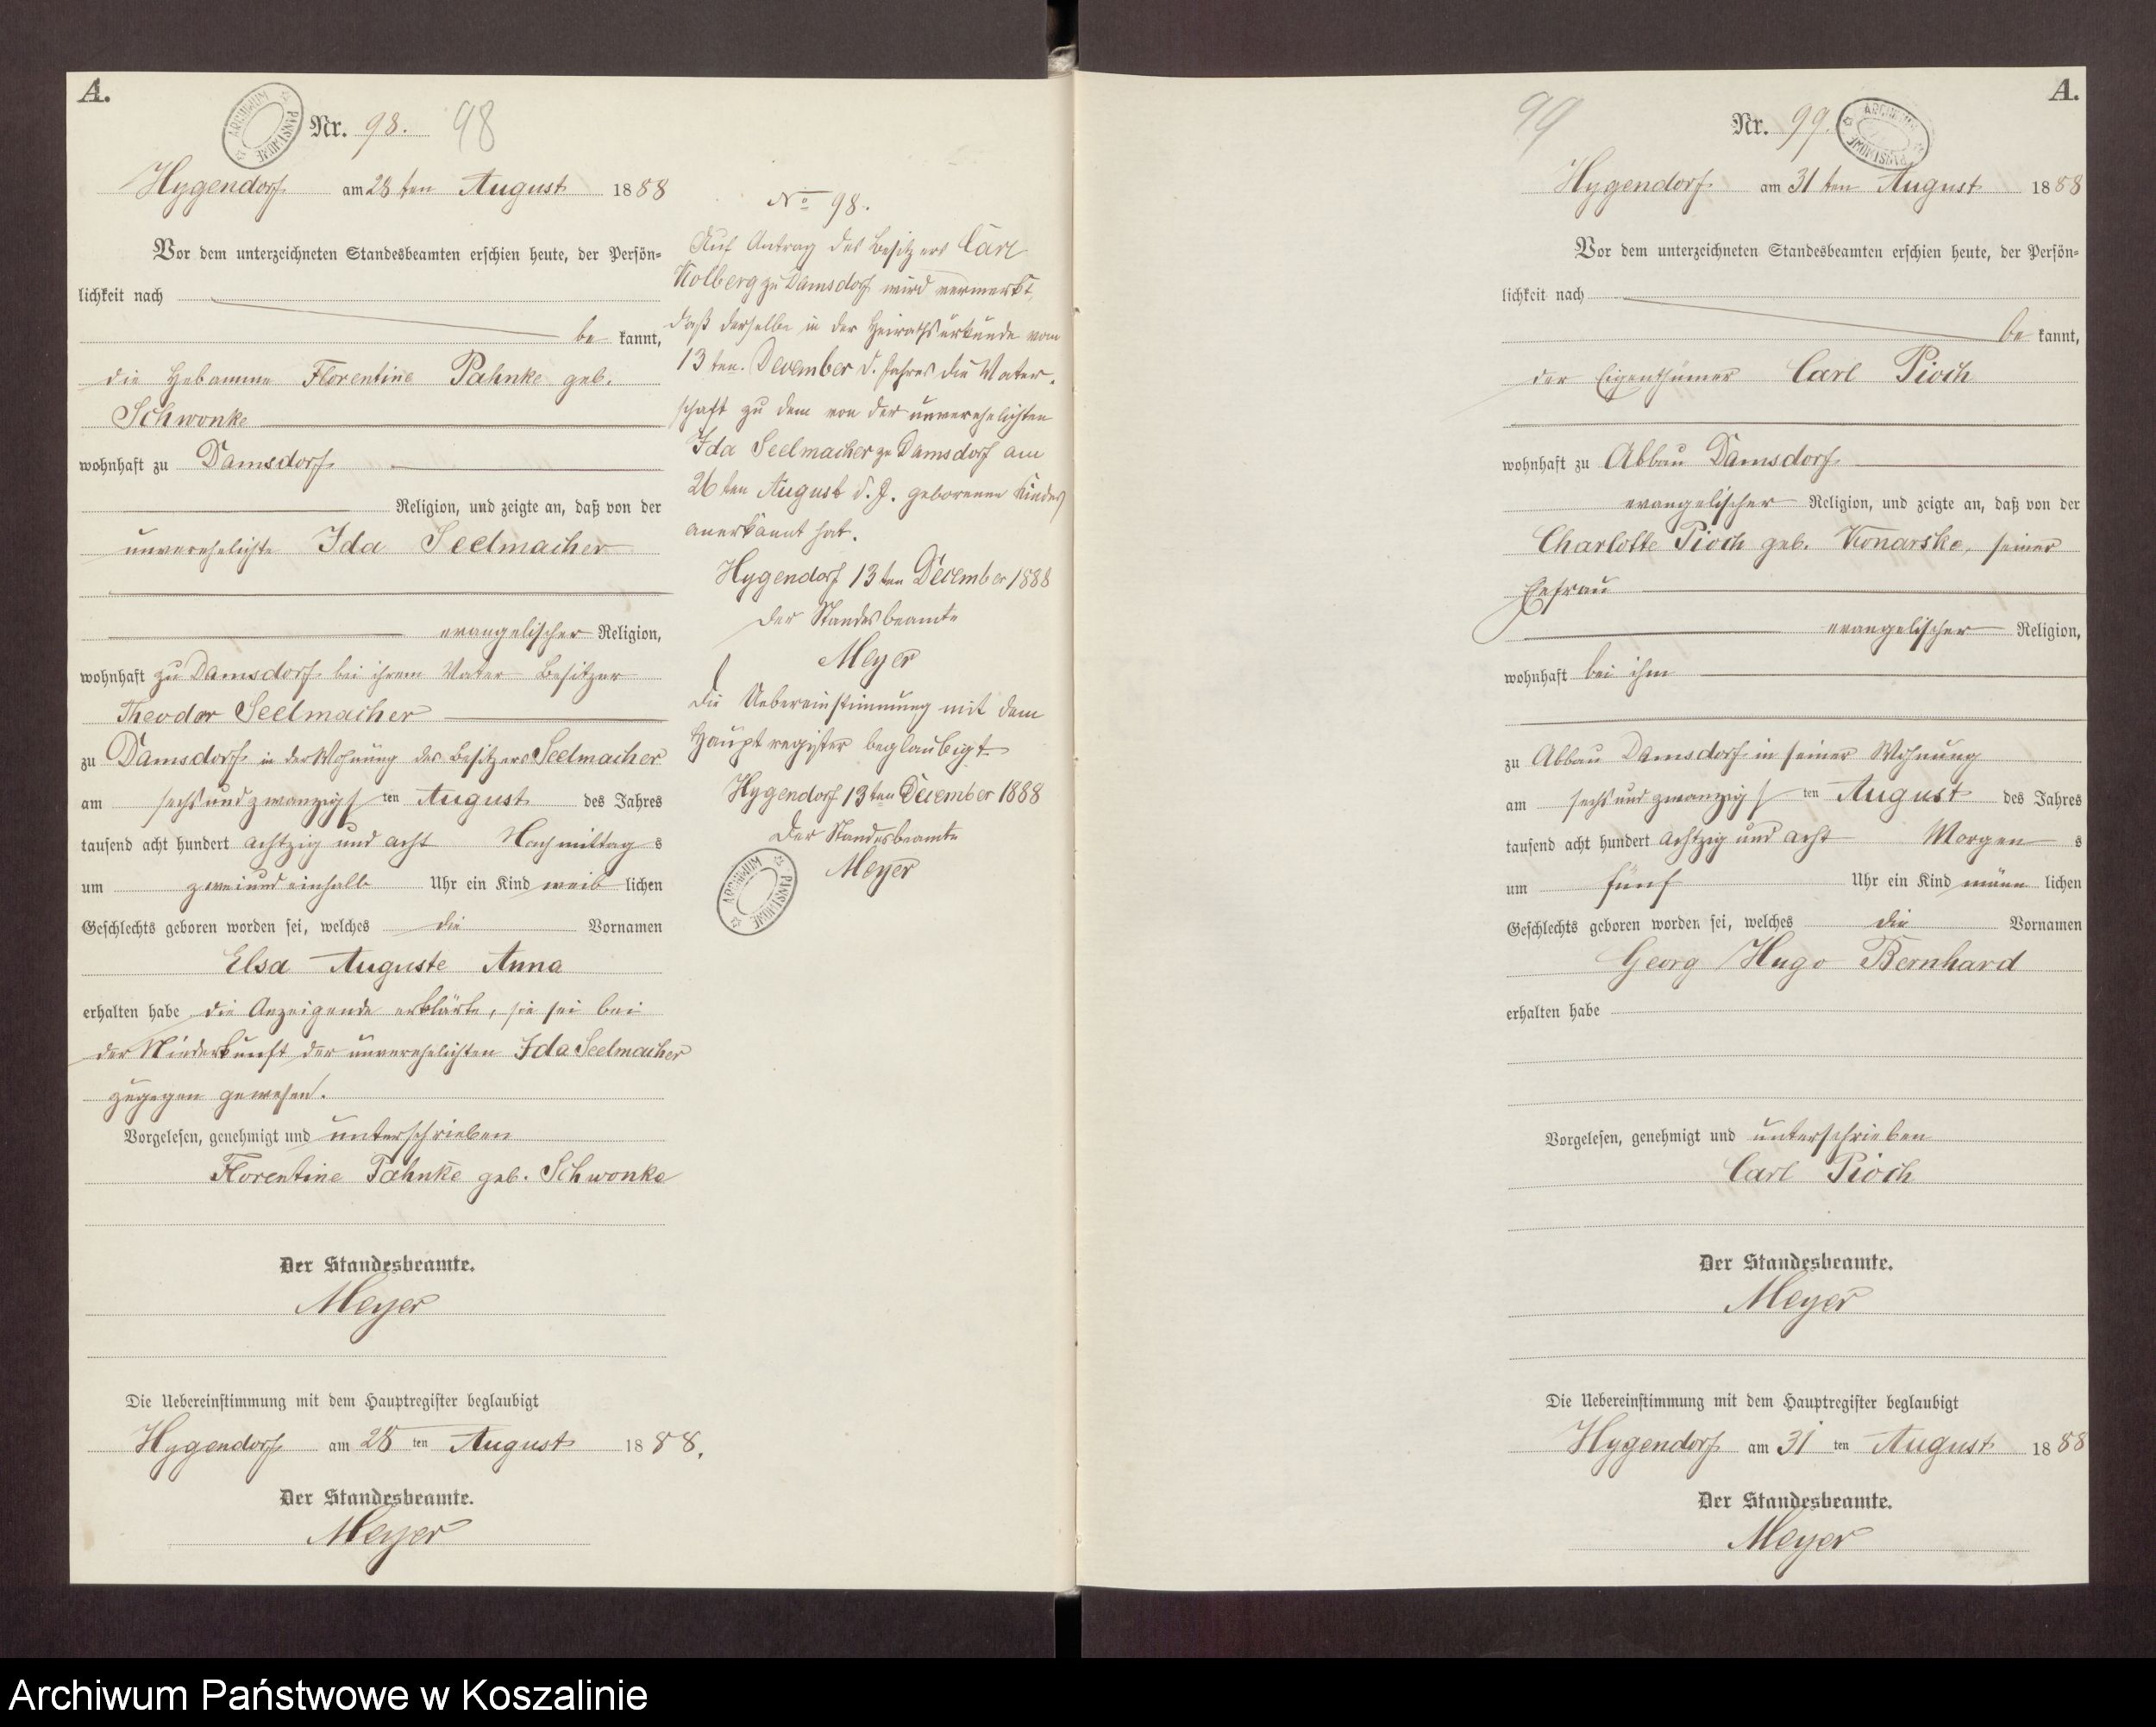 A.
Nr. 98. 98
Hygendorf am 28 ten August 1888
Vor dem unterzeichneten Standesbeamten erschien heute, der Persön-
lichkeit nach
be kannt,
die Hebamme Florentine Pahnke geb.
Schwonke
wohnhaft zu Damsdorf
Religion, und zeigte an, daß von der
unverehelichte Ida Seelmacher
evangelischer Religion,
wohnhaft zu Damsdorf bei ihrem Vater Besitzer
Theodor Seelmacher
zu Damsdorf in der Wohnung des Besitzers Seelmacher
am sechs und zwanzigs ten August des Jahres
tausend acht hundert achtzig und acht Nachmittag s
um zwei und einhalb Uhr ein Kind weib lichen
Geschlechts geboren worden sei, welches die Vornamen
Elsa Auguste Anna
erhalten habe die Anzeigende erklärte, sie sei bei
der Niederkunft der unverehelichten Ida Seelmacher
zugegen gewesen.
Vorgelesen, genehmigt und unterschrieben
Florentine Pahnke geb. Schwonke
Der Standesbeamte.
Meyer
Die Uebereinstimmung mit dem Hauptregister beglaubigt
Hygendorf am 28 ten August 1888.
Der Standesbeamte.
Meyer
No 98.
Auf Antrag des Besitzers Carl
Kolberg zu Damsdorf wird vermerkt,
daß derselbe in der Heirathsurkunde vom
13 ten December d. Jahres die Vater-
schaft zu dem von der unverehelichten
Ida Seelmacher zu Damsdorf am
26 ten August d. J. geborenen Kindes
anerkannt hat.
Hygendorf 13 ten December 1888
Der Standesbeamte
Meyer
Die Uebereinstimmung mit dem
Hauptregister beglaubigt
Hygendorf 13 ten December 1888
Der Standesbeamte
Meyer
ARCHIWUM PAŃSTWOWE
A.
99 Nr. 99.
Hygendorf am 31 ten August 1888
Vor dem unterzeichneten Standesbeamten erschien heute, der Persön-
lichkeit nach
be kannt,
der Eigenthümer Carl Pioch
wohnhaft zu Abbau Damsdorf
evangelischer Religion, und zeigte an, daß von der
Charlotte Pioch geb. Konarske, seiner
Ehefrau
evangelischer Religion,
wohnhaft bei ihm
zu Abbau Damsdorf in seiner Wohnung
am sechs und zwanzigs ten August des Jahres
tausend acht hundert achtzig und acht Morgen s
um fünf Uhr ein Kind männ lichen
Geschlechts geboren worden sei, welches die Vornamen
Georg Hugo Bernhard
erhalten habe
Vorgelesen, genehmigt und unterschrieben
Carl Pioch
Der Standesbeamte.
Meyer
Die Uebereinstimmung mit dem Hauptregister beglaubigt
Hygendorf am 31 ten August 1888
Der Standesbeamte.
Meyer
Archiwum Państwowe w Koszalinie